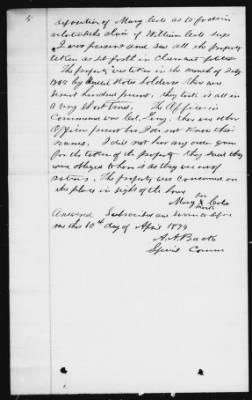 5
deposition of Mary Cole as to freedom
relationship claim of William Cole says
I was present and saw all the property
taken as set forth in Claimant petition
The property was taken in the month of July
1864 by United States Soldiers. There was
several hundred present. They took it all in
a very short time. The Officer in
Command was Col. Long. There was other
Officers present but I do not know their
names. I did not hear any order given
for the taken of the property they said they
were obliged to have it as they were out of
rations. The property was consumed on
the place in sight of the house
her
Mary X Cole
mark
Answered Subscribed and sworn to before
me this 10th day of April 1879
A. A.
Special Comm